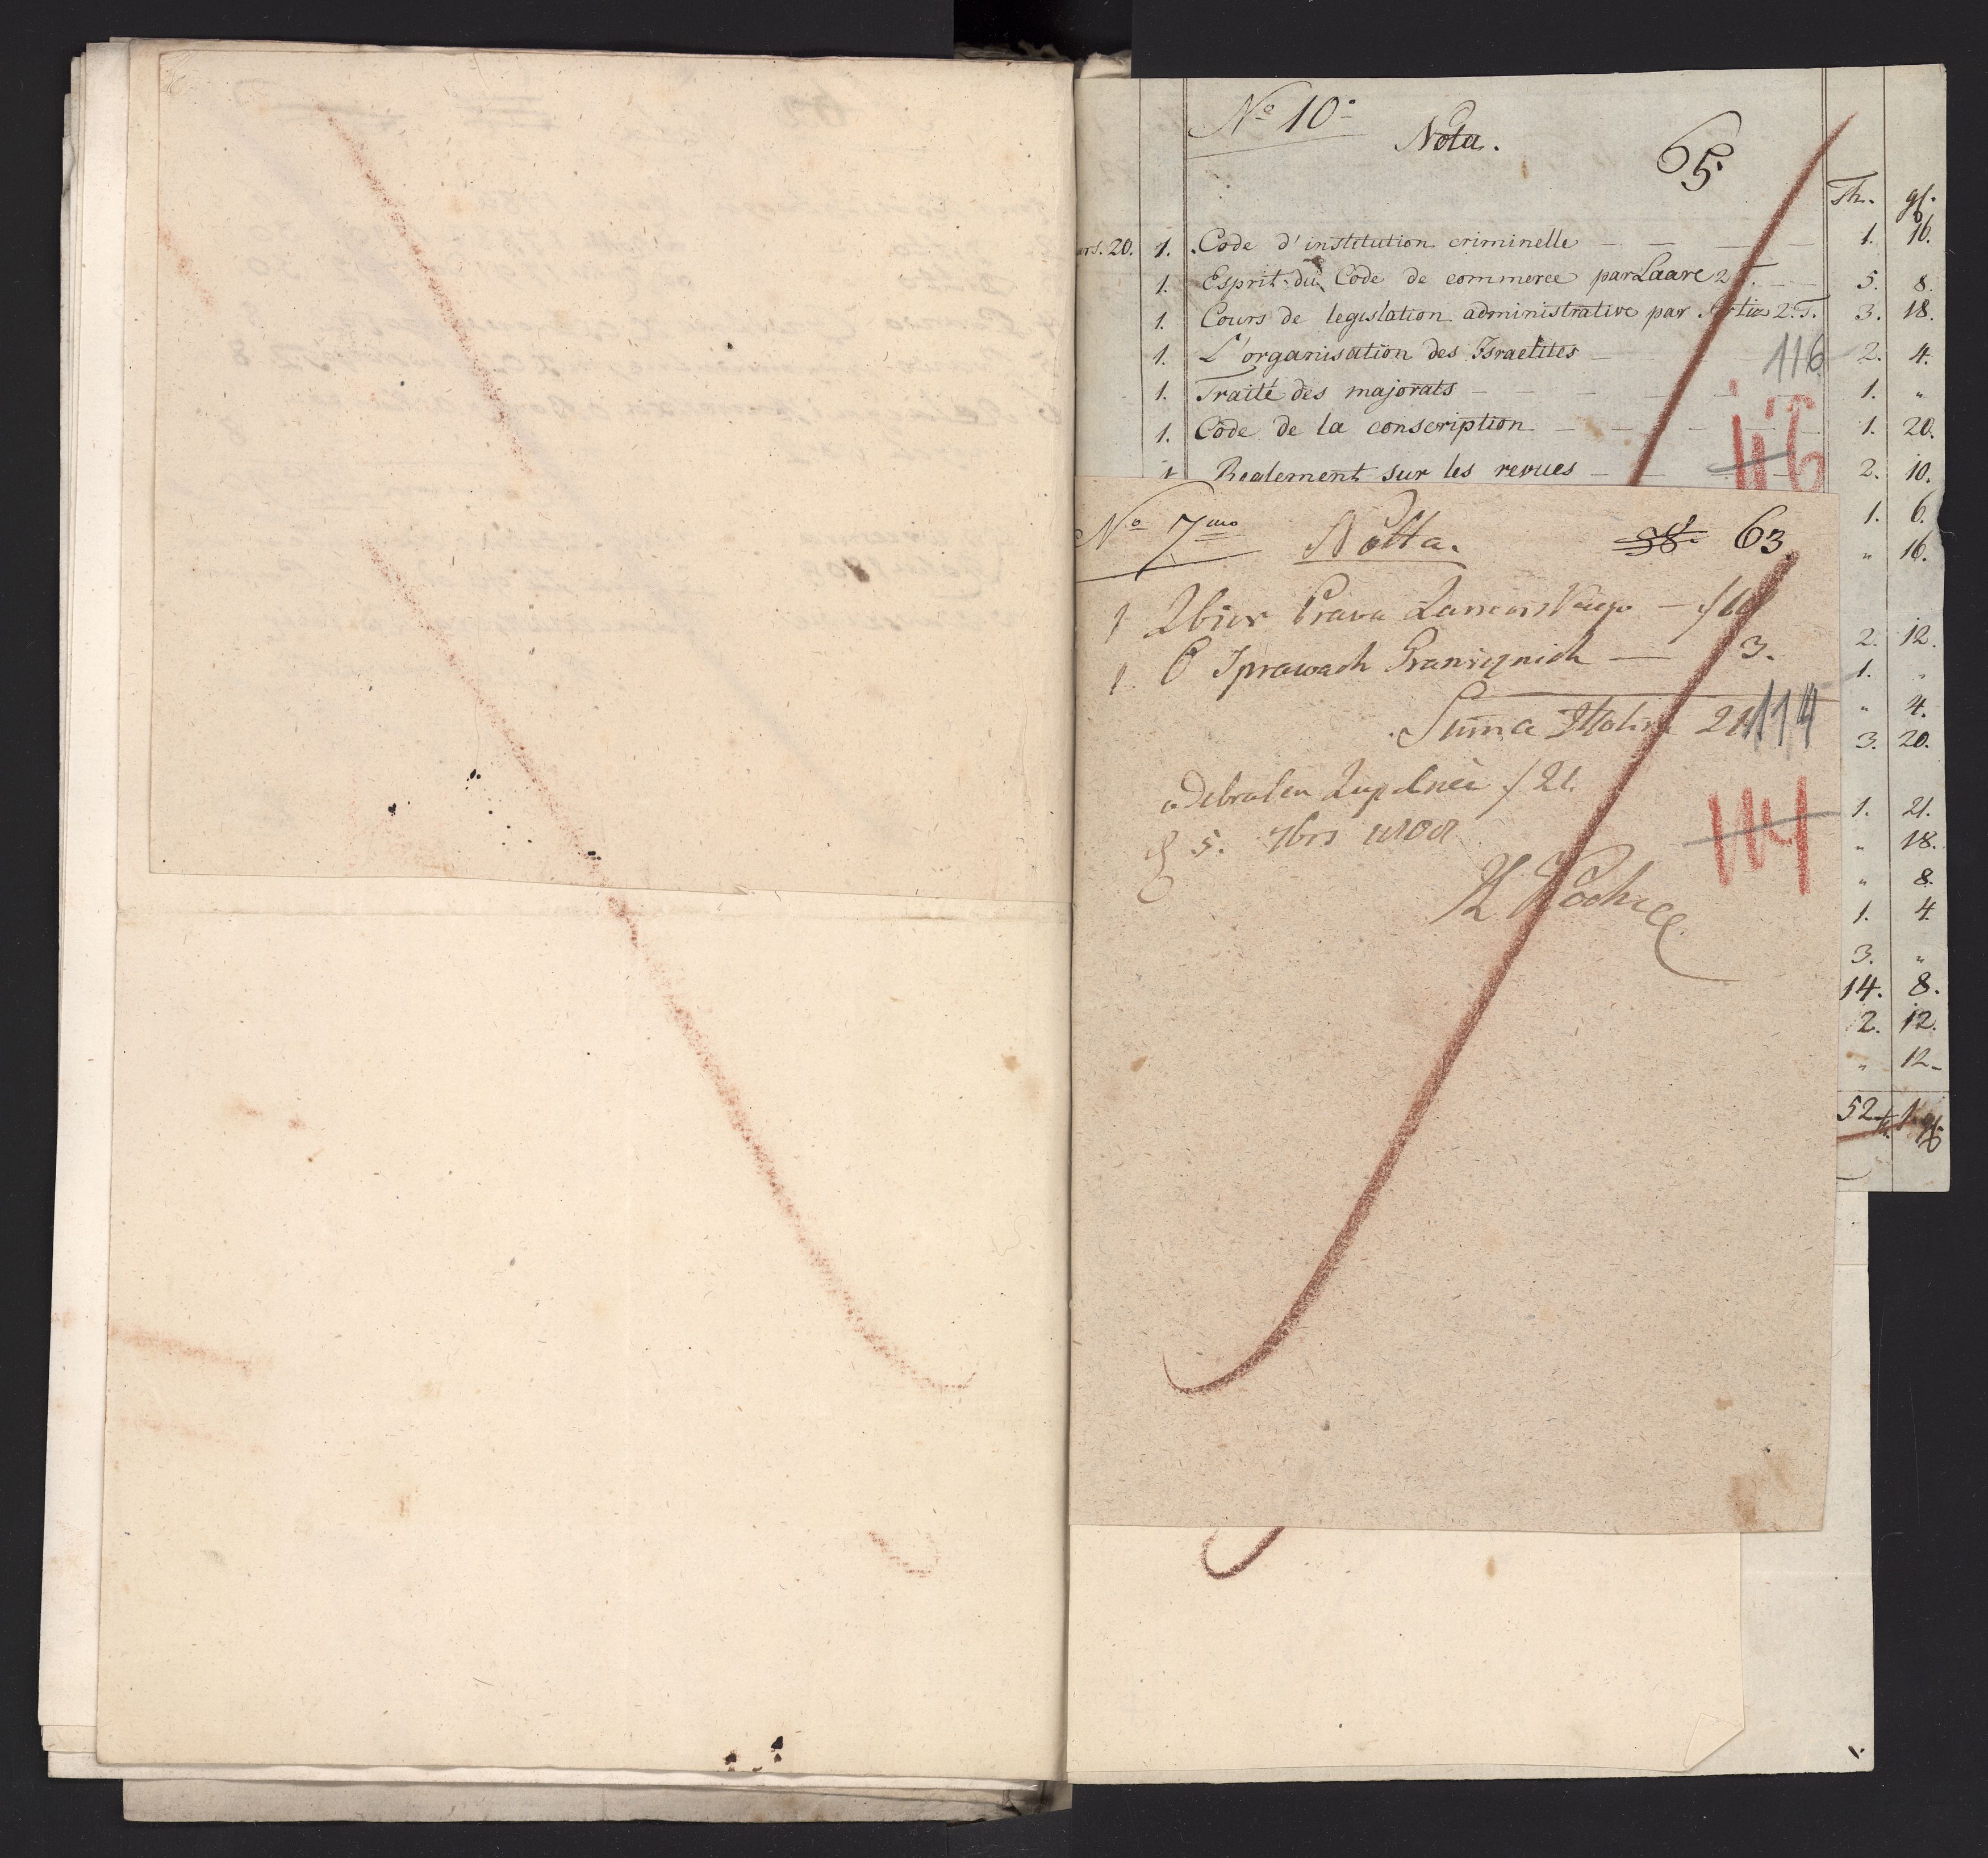 No 10o
Nota.
65.
Th. gl.
ars. 20. 1. Code d'institution criminelle — — — 1. 16.
1. Esprit du Code de commerce par Laare 2 T. — — 5. 8.
1. Cours de legislation administrative par 2. T. 3. 18.
1. L'organisation des Israelites — 116 2. 4.
1. Traité des majorats — — — — 1. "
1. Code de la conscription — — — — 1. 20.
116
1 Reglement sur les revues — — 2. 10.
1. 6.
" 16.
2. 12.
1. "
" 4.
3. 20.
1. 21.
" 18.
" 8.
1. 4.
3. "
14. 8.
2. 12.
" 12-
52 th. 1 gl.
No 7mo Notta. 38. 63
1 Zbior Prawa — f 18
1. O Sprawach Granicznich — 3.
Suma 21
114
Odebralem Zupelnie f 21.
114
d 5. 7brs